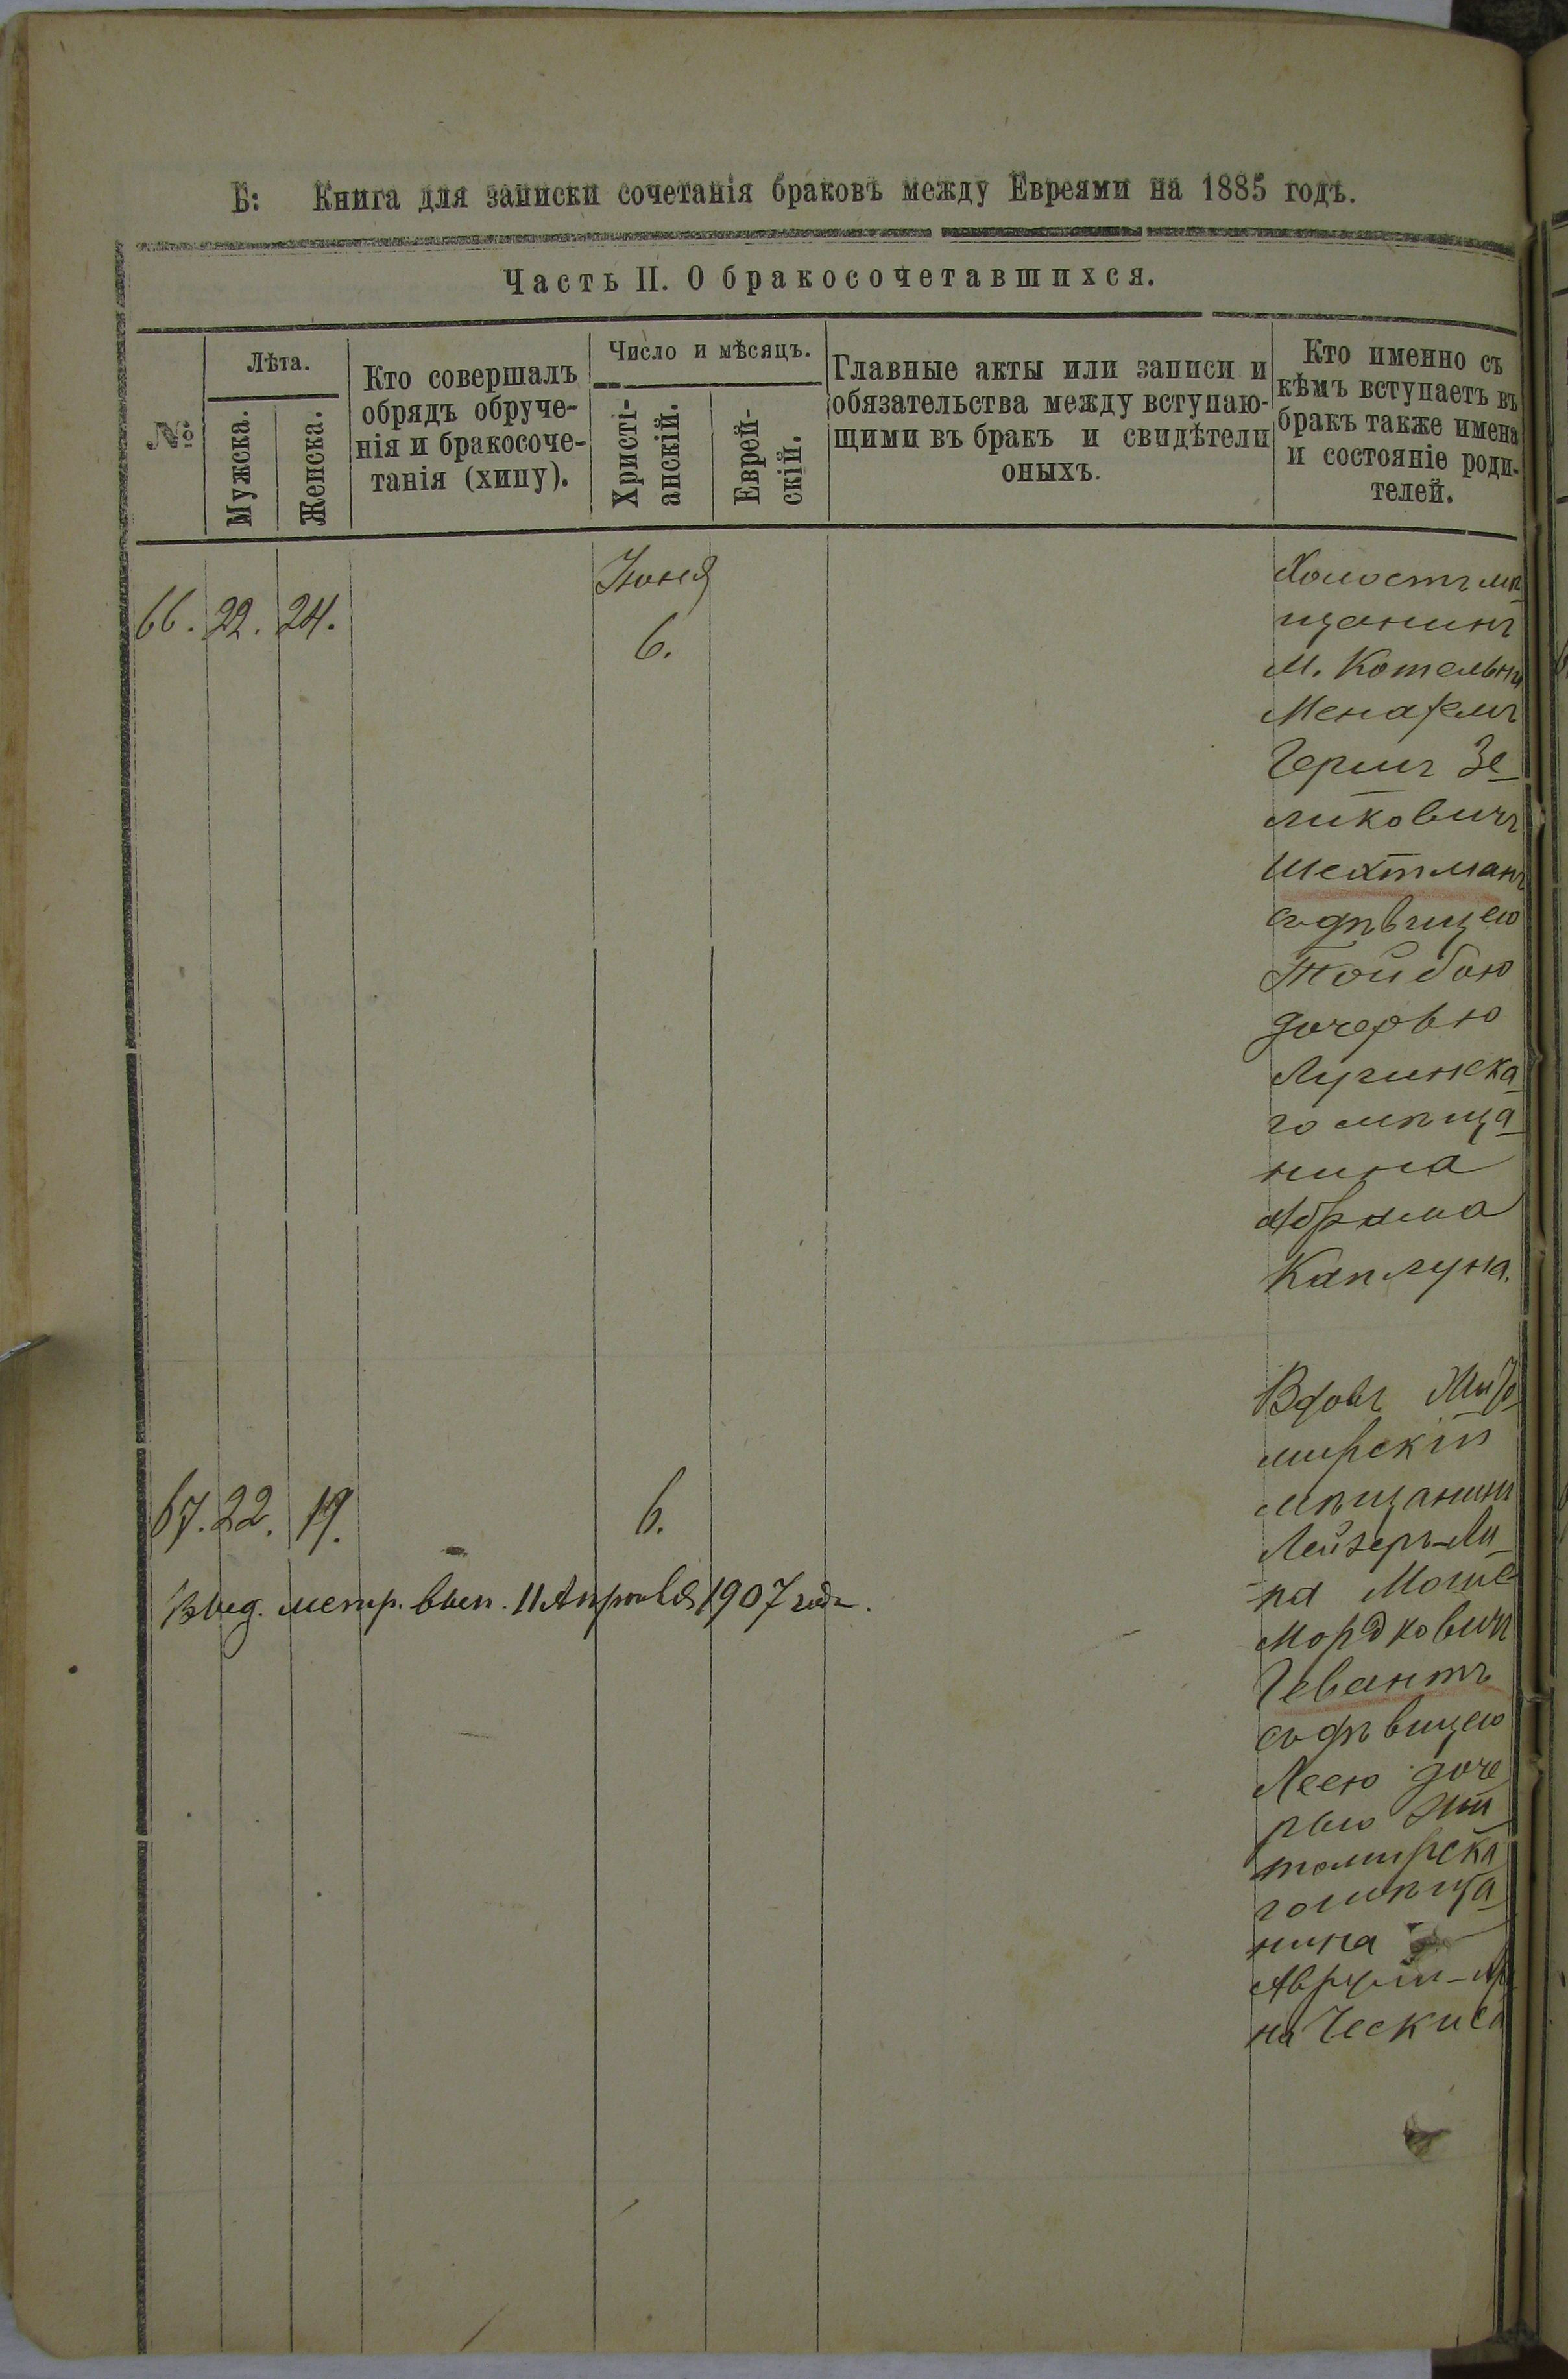 Б: Книга для записки сочетанія браковъ между Евреями на 1885 годъ.
Часть II. О бракосочетавшихся.
№
Лѣта.
Мужска.
Женска.
Кто совершалъ
обрядъ обруче-
нія и бракосоче-
танія (хипу).
Число и мѣсяцъ.
Христі-
анскій.
Еврей-
скій.
Главные акты или записи и
обязательства между вступаю-
щими въ бракъ и свидѣтели
оныхъ.
Кто именно съ
кѣмъ вступаетъ въ
бракъ также имена
и состояніе роди-
телей.
66. 22. 24.
Іюня
6.
Холостъ мѣ
щанинъ
М. Котельни
Менахемъ
Гершъ Зе
ликовичъ
Шехтманъ
съ дѣвицею
Тойбою
дочерью
Лугинска
го мѣща
нина
Абрама
Каплуна.
67. 22. 19.
6.
Выд. метр. вып. 11 Апрѣля 1907 года.
Вдовъ Жито
мирскій
мѣщанинъ
Лейзеръ-Ли
па Мошё
Мордковичъ
Гевантъ
съ дѣвицею
Леею доче
рью Жи
томирска
го мѣща
нина
Аврум-
на Ческиса